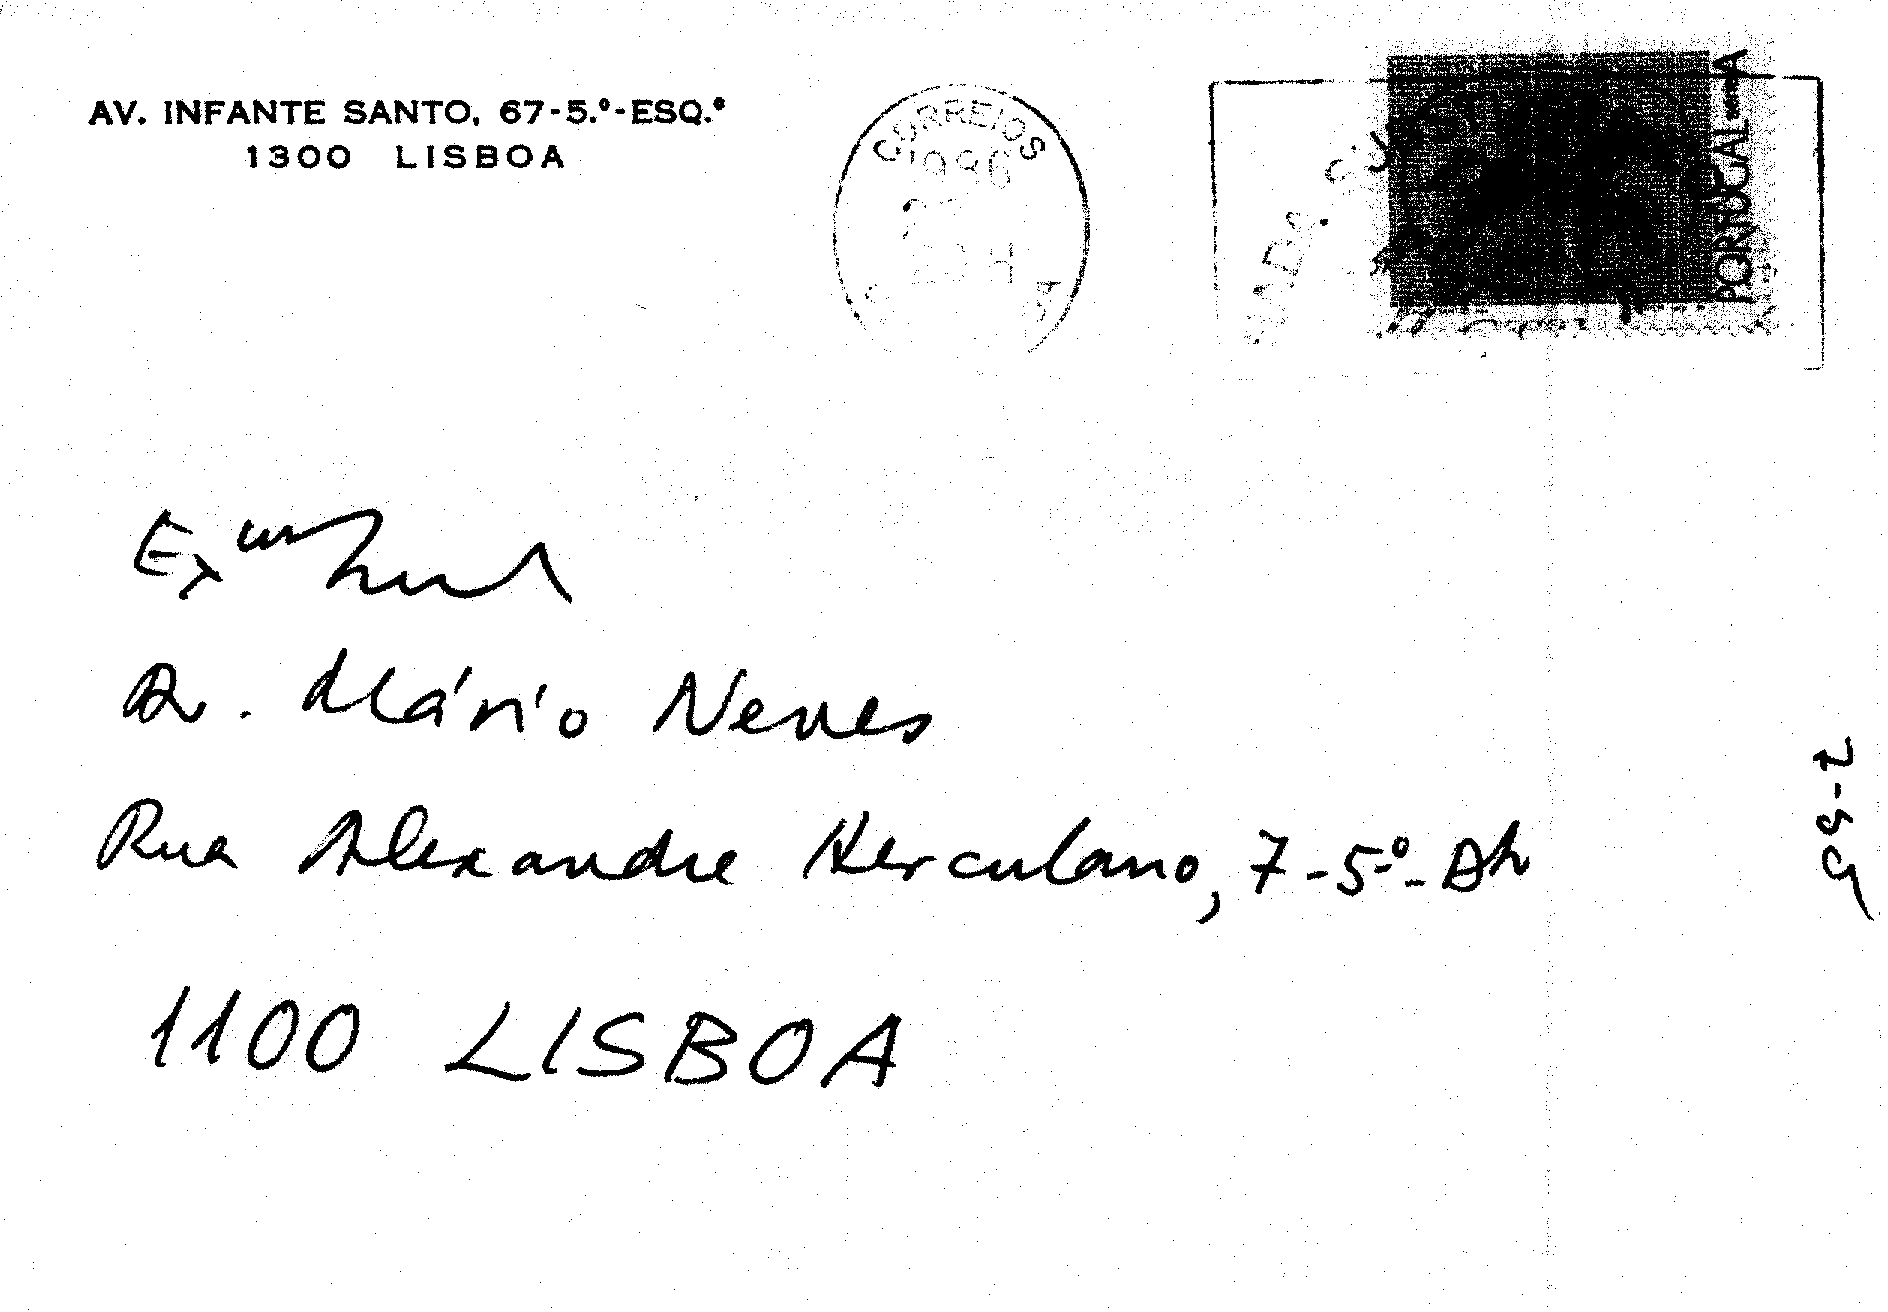 AV. INFANTE SANTO, 67-5.º-ESQ.º
1300 LISBOA
CORREIOS
1986
20 H
PORTUGAL
Exmo Senhor
Dr. Mário Neves
Rua Alexandre Herculano, 7-5º-Dto
1100 LISBOA